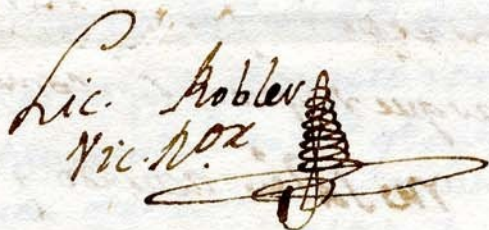 Lic. Robles
Vic. Ror